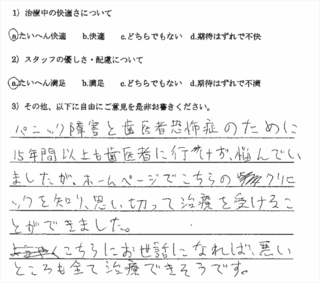 1）治療中の快適さについて
a.たいへん快適 b.快適 c.どちらでもない d.期待はずれで不快
2）スタッフの優しさ・配慮について
a.たいへん満足 b.満足 c.どちらでもない d.期待はずれで不満
3）その他、以下に自由にご意見を是非お書きください。
パニック障害と歯医者恐怖症のために
15年間以上も歯医者に行けず、悩んでい
ましたが、ホームページでこちらのクリニ
ックを知り、思い切って治療を受けるこ
とができました。
こちらにお世話になれば、悪い
ところも全て治療できそうです。